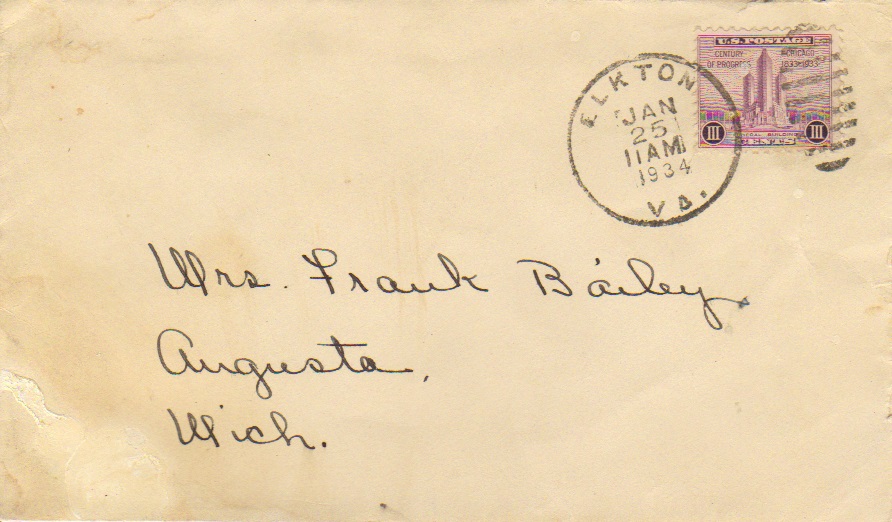 U.S. POSTAGE
CENTURY OF PROGRESS
CHICAGO 1833-1933
FEDERAL BUILDING
III CENTS III
ELKTON
JAN
25
11 AM
1934
VA.
Mrs. Frank Bailey
Augusta,
Mich.